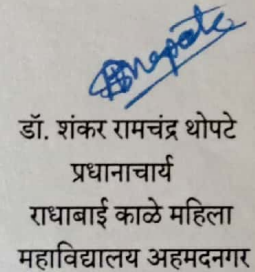 डॉ. शंकर रामचंद्र थोपटे
प्रधानाचार्य
राधाबाई काळे महिला
महाविद्यालय अहमदनगर